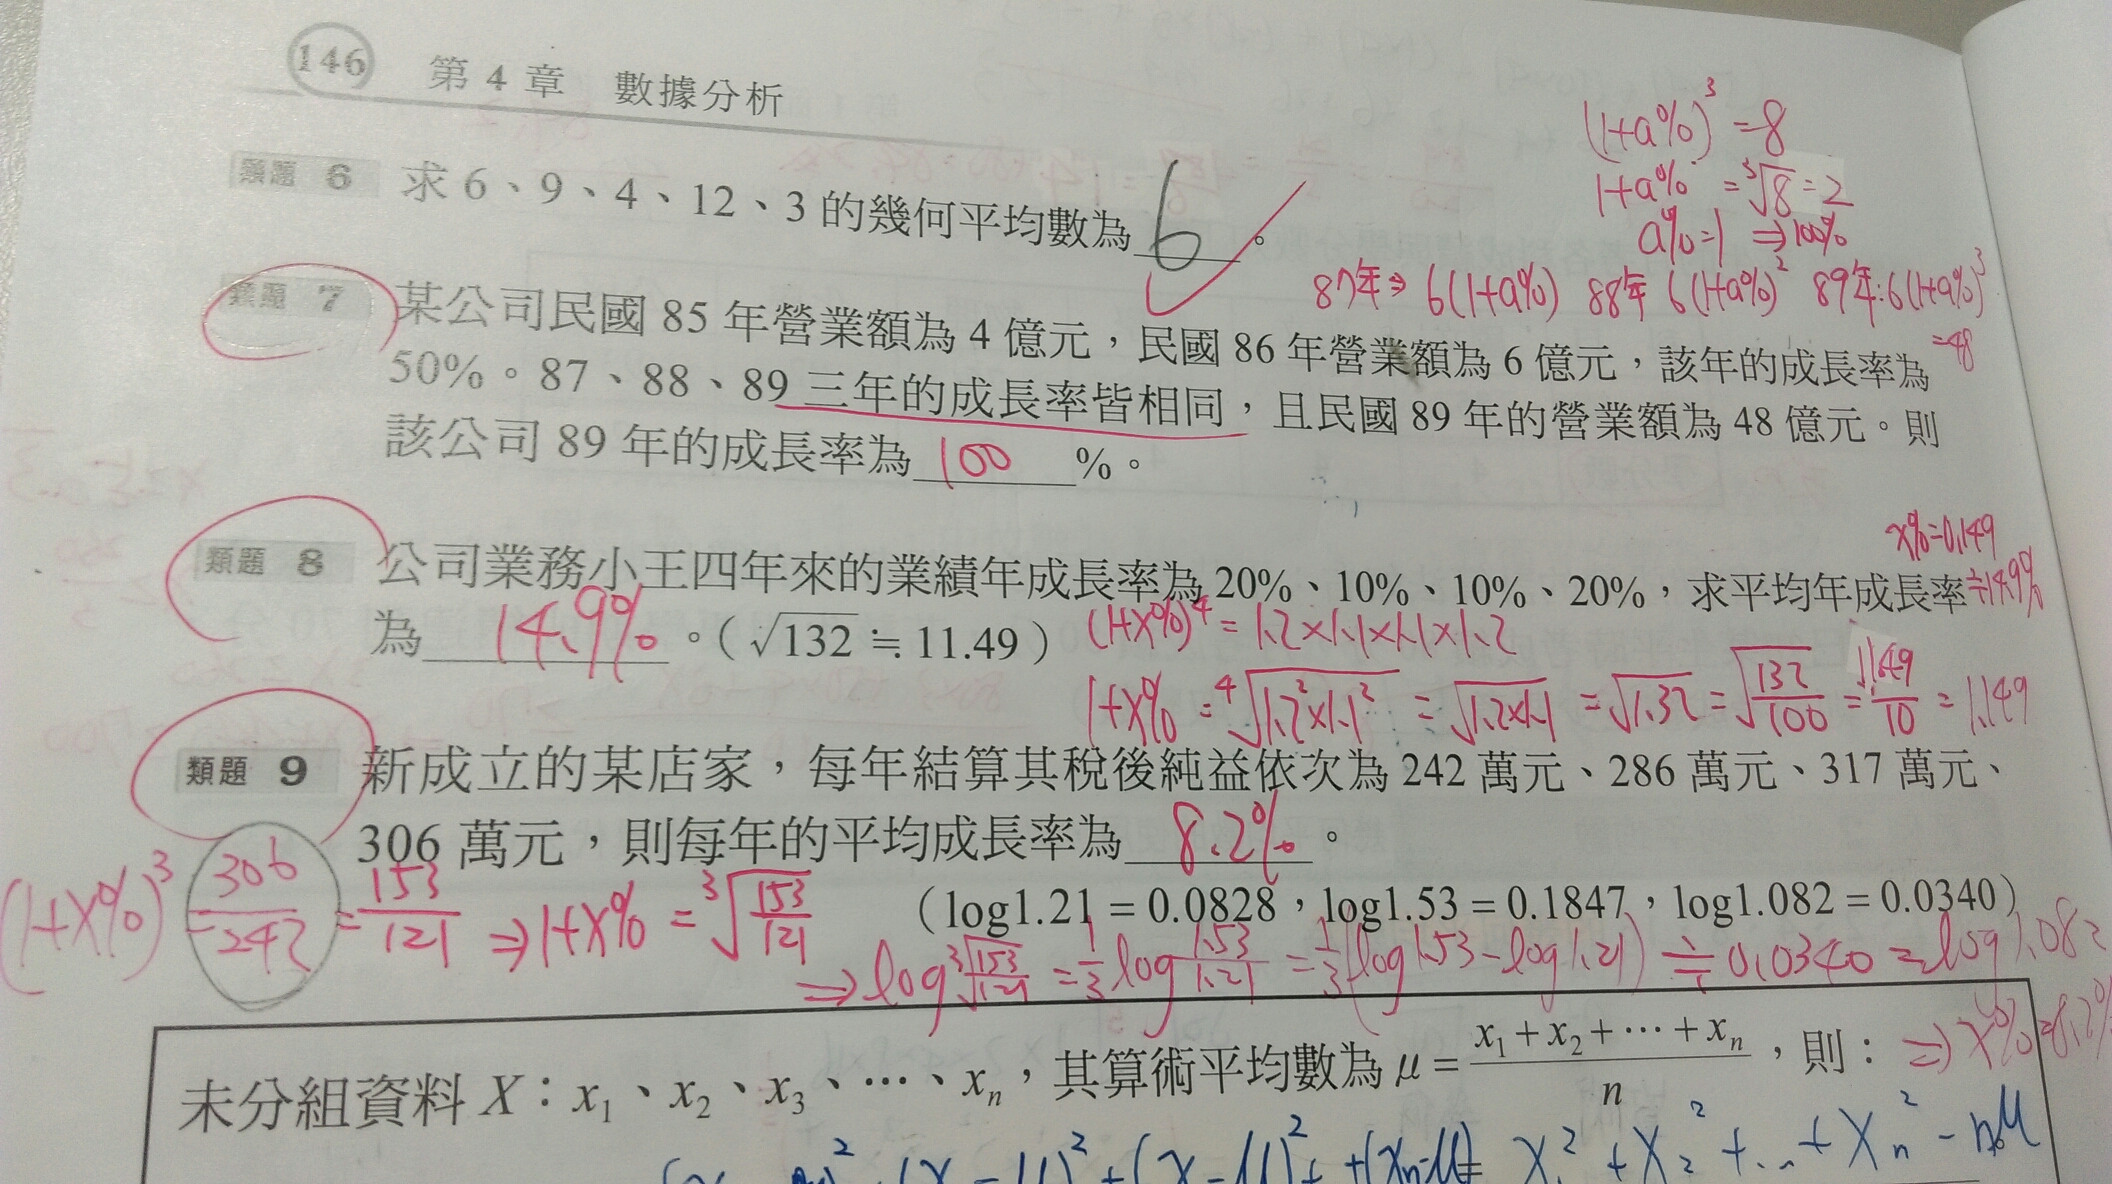 146 第 4 章 數據分析
(1+a%)³=8
1+a% = ³√8=2
a%=1 ⇒100%
類題 6 求 6、9、4、12、3 的幾何平均數為 6 。
87年⇒ 6(1+a%) 88年 6(1+a%)² 89年:6(1+a%)³
=48
類題 7 某公司民國 85 年營業額為 4 億元，民國 86 年營業額為 6 億元，該年的成長率為
50%。87、88、89 三年的成長率皆相同，且民國 89 年的營業額為 48 億元。則
該公司 89 年的成長率為 100 %。
x%=0.149
≒14.9%
類題 8 公司業務小王四年來的業績年成長率為 20%、10%、10%、20%，求平均年成長率
為 14.9% 。（√132 ≒ 11.49）
(1+x%)⁴ = 1.2×1.1×1.1×1.2
1+x% = ⁴√1.2²×1.1² = √1.2×1.1 = √1.32 = √132/100 = 11.49/10 = 1.149
類題 9 新成立的某店家，每年結算其稅後純益依次為 242 萬元、286 萬元、317 萬元、
306 萬元，則每年的平均成長率為 8.2% 。
（log1.21 = 0.0828，log1.53 = 0.1847，log1.082 = 0.0340）
(1+x%)³ = 306/242 = 153/121 ⇒ 1+x% = ³√153/121
⇒ log ³√1.53/1.21 = 1/3 log 1.53/1.21 = 1/3 (log1.53 - log1.21) ≒ 0.0340 = log1.082
⇒ x% = 8.2%
未分組資料 X：x₁、x₂、x₃、⋯、xₙ，其算術平均數為 μ = (x₁ + x₂ + ⋯ + xₙ)/n，則：
-μ)²+(x -μ)²+ +(xₙ-μ)²= x₁²+x₂²+...+xₙ²-nμ